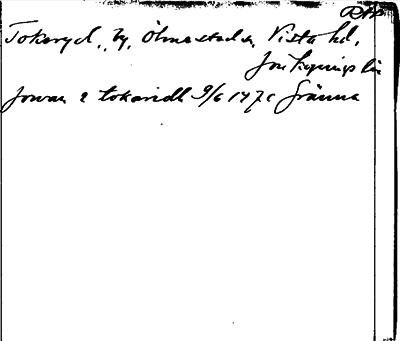 RAP
Tokeryd, by, Ölmestads sn Vista hd,
Jönköpings län
Jowan i tokaridh 9/6 1471 Gränna